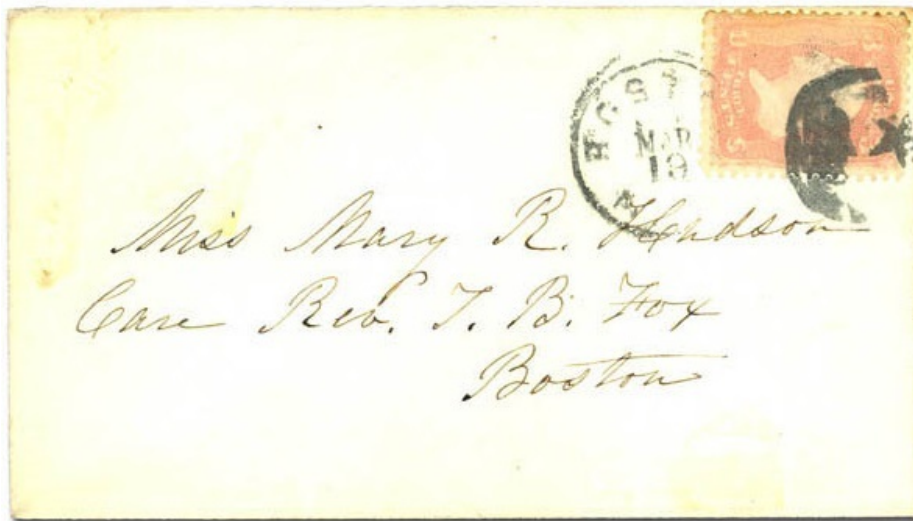 MAR
19
Miss Mary R. Hudson
Care Rev. T. B. Fox
Boston